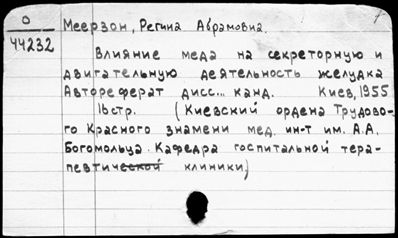 О
44232
Меерзон, Регина Абрамовна.
Влияние меда на секреторную и
двигательную деятельность желудка
Автореферат дисс... канд. Киев, 1955
16 стр. (Киевский ордена Трудово-
го Красного знамени мед. ин-т им. А.А.
Богомольца. Кафедра госпитальной тера-
певтической клиники)